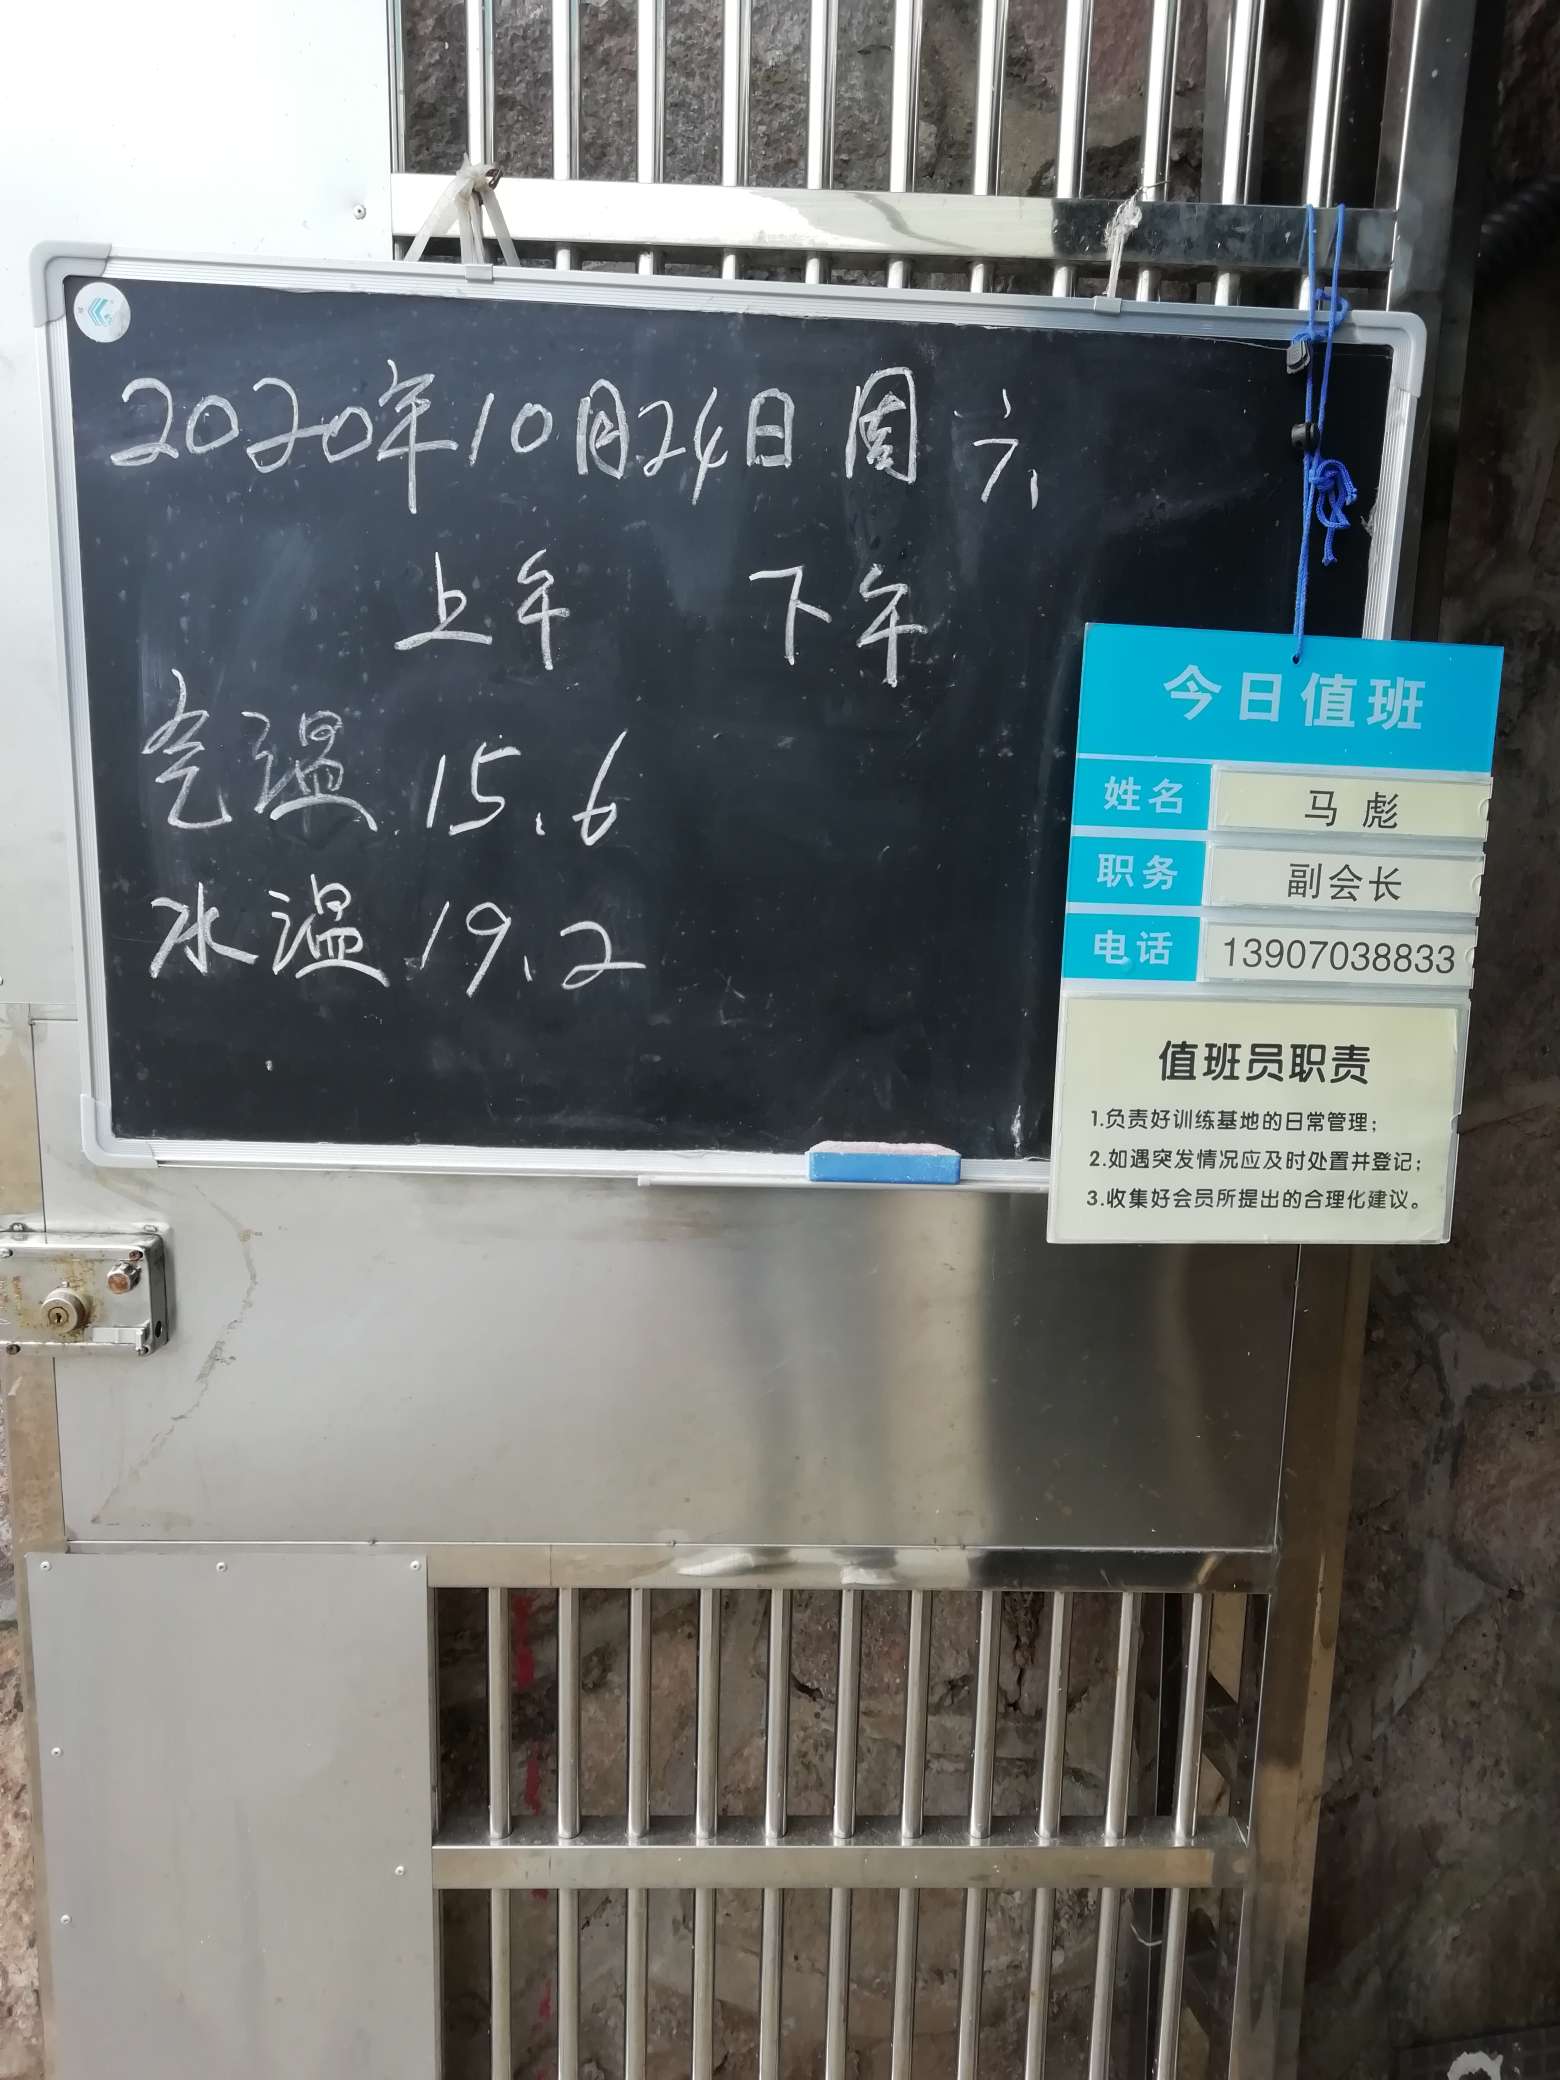 2020年10月24日 周六
上午 下午
气温 15.6
水温 19.2
今日值班
姓名 马彪
职务 副会长
电话 13907038833
值班员职责
1.负责好训练基地的日常管理；
2.如遇突发情况应及时处置并登记；
3.收集好会员所提出的合理化建议。